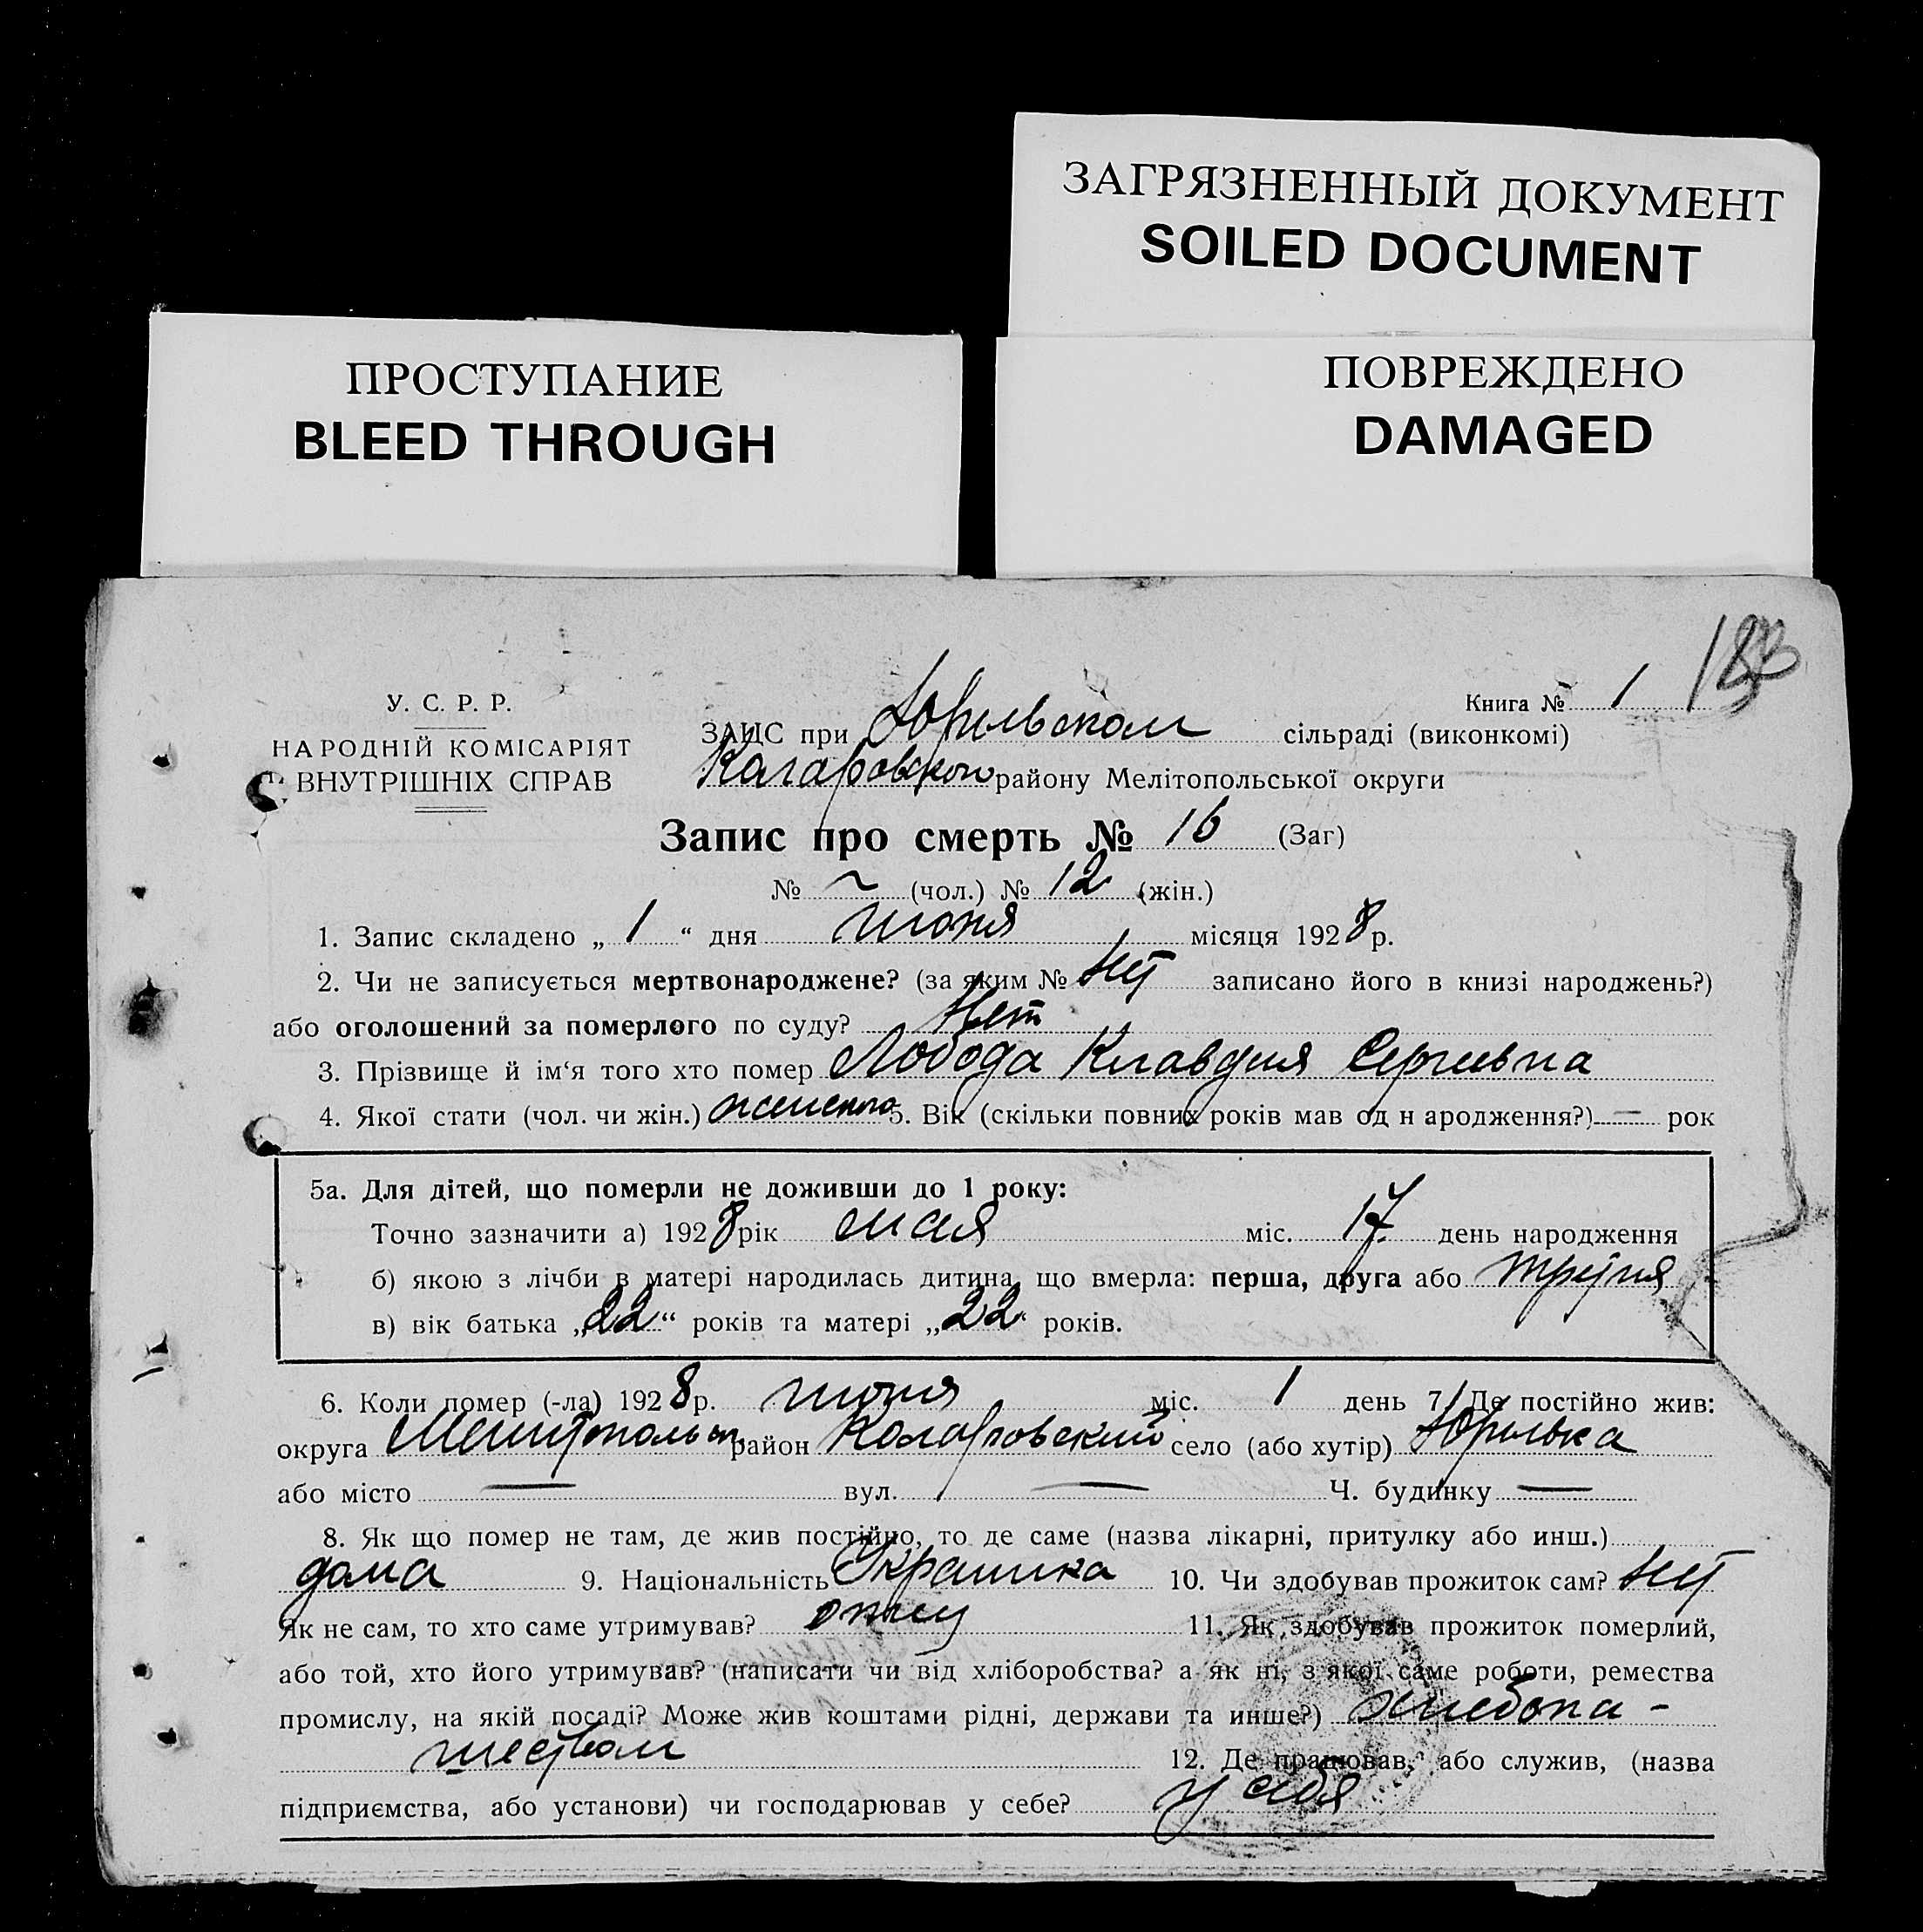 ЗАГРЯЗНЕННЫЙ ДОКУМЕНТ
SOILED DOCUMENT
ПРОСТУПАНИЕ
BLEED THROUGH
ПОВРЕЖДЕНО
DAMAGED
У. С. Р. Р.
НАРОДНІЙ КОМІСАРІЯТ
ВНУТРІШНІХ СПРАВ
Книга № 1
ЗАЦС при Юрьевском сільраді (виконкомі)
району Мелітопольської округи
Запис про смерть № 16 (Заг)
№ ~ (чол.) № 12 (жін.)
1. Запис складено „ 1 “ дня июня місяця 1928 р.
2. Чи не записується мертвонароджене? (за яким № нет записано його в книзі народжень?)
або оголошений за померлого по суду? Нет
3. Прізвище й ім‘я того хто помер Лобода Клавдия Сергиевна
4. Якої стати (чол. чи жін.) женского 5. Вік (скільки повних років мав од н ародження?) — рок
5а. Для дітей, що померли не доживши до 1 року:
Точно зазначити а) 1928 рік мая міс. 17 день народження
б) якою з лічби в матері народилась дитина, що вмерла: перша, друга або третия
в) вік батька „22“ років та матері „22“ років.
6. Коли помер (-ла) 1928 р. июня міс. 1 день 7. Де постійно жив:
округа район Коларовский село (або хутір) Юрьевка
або місто — вул. — Ч. будинку —
8. Як що помер не там, де жив постійно, то де саме (назва лікарні, притулку або инш.)
дома 9. Національність Украинка 10. Чи здобував прожиток сам? нет
Як не сам, то хто саме утримував? отец 11. Як здобував прожиток померлий,
або той, хто його утримував? (написати чи від хліборобства? а як ні, з якої саме роботи, ремества
промислу, на якій посаді? Може жив коштами рідні, держави та инше?) хлебопа-
шеством 12. Де працював, або служив, (назва
підприємства, або установи) чи господарював у себе? у себя